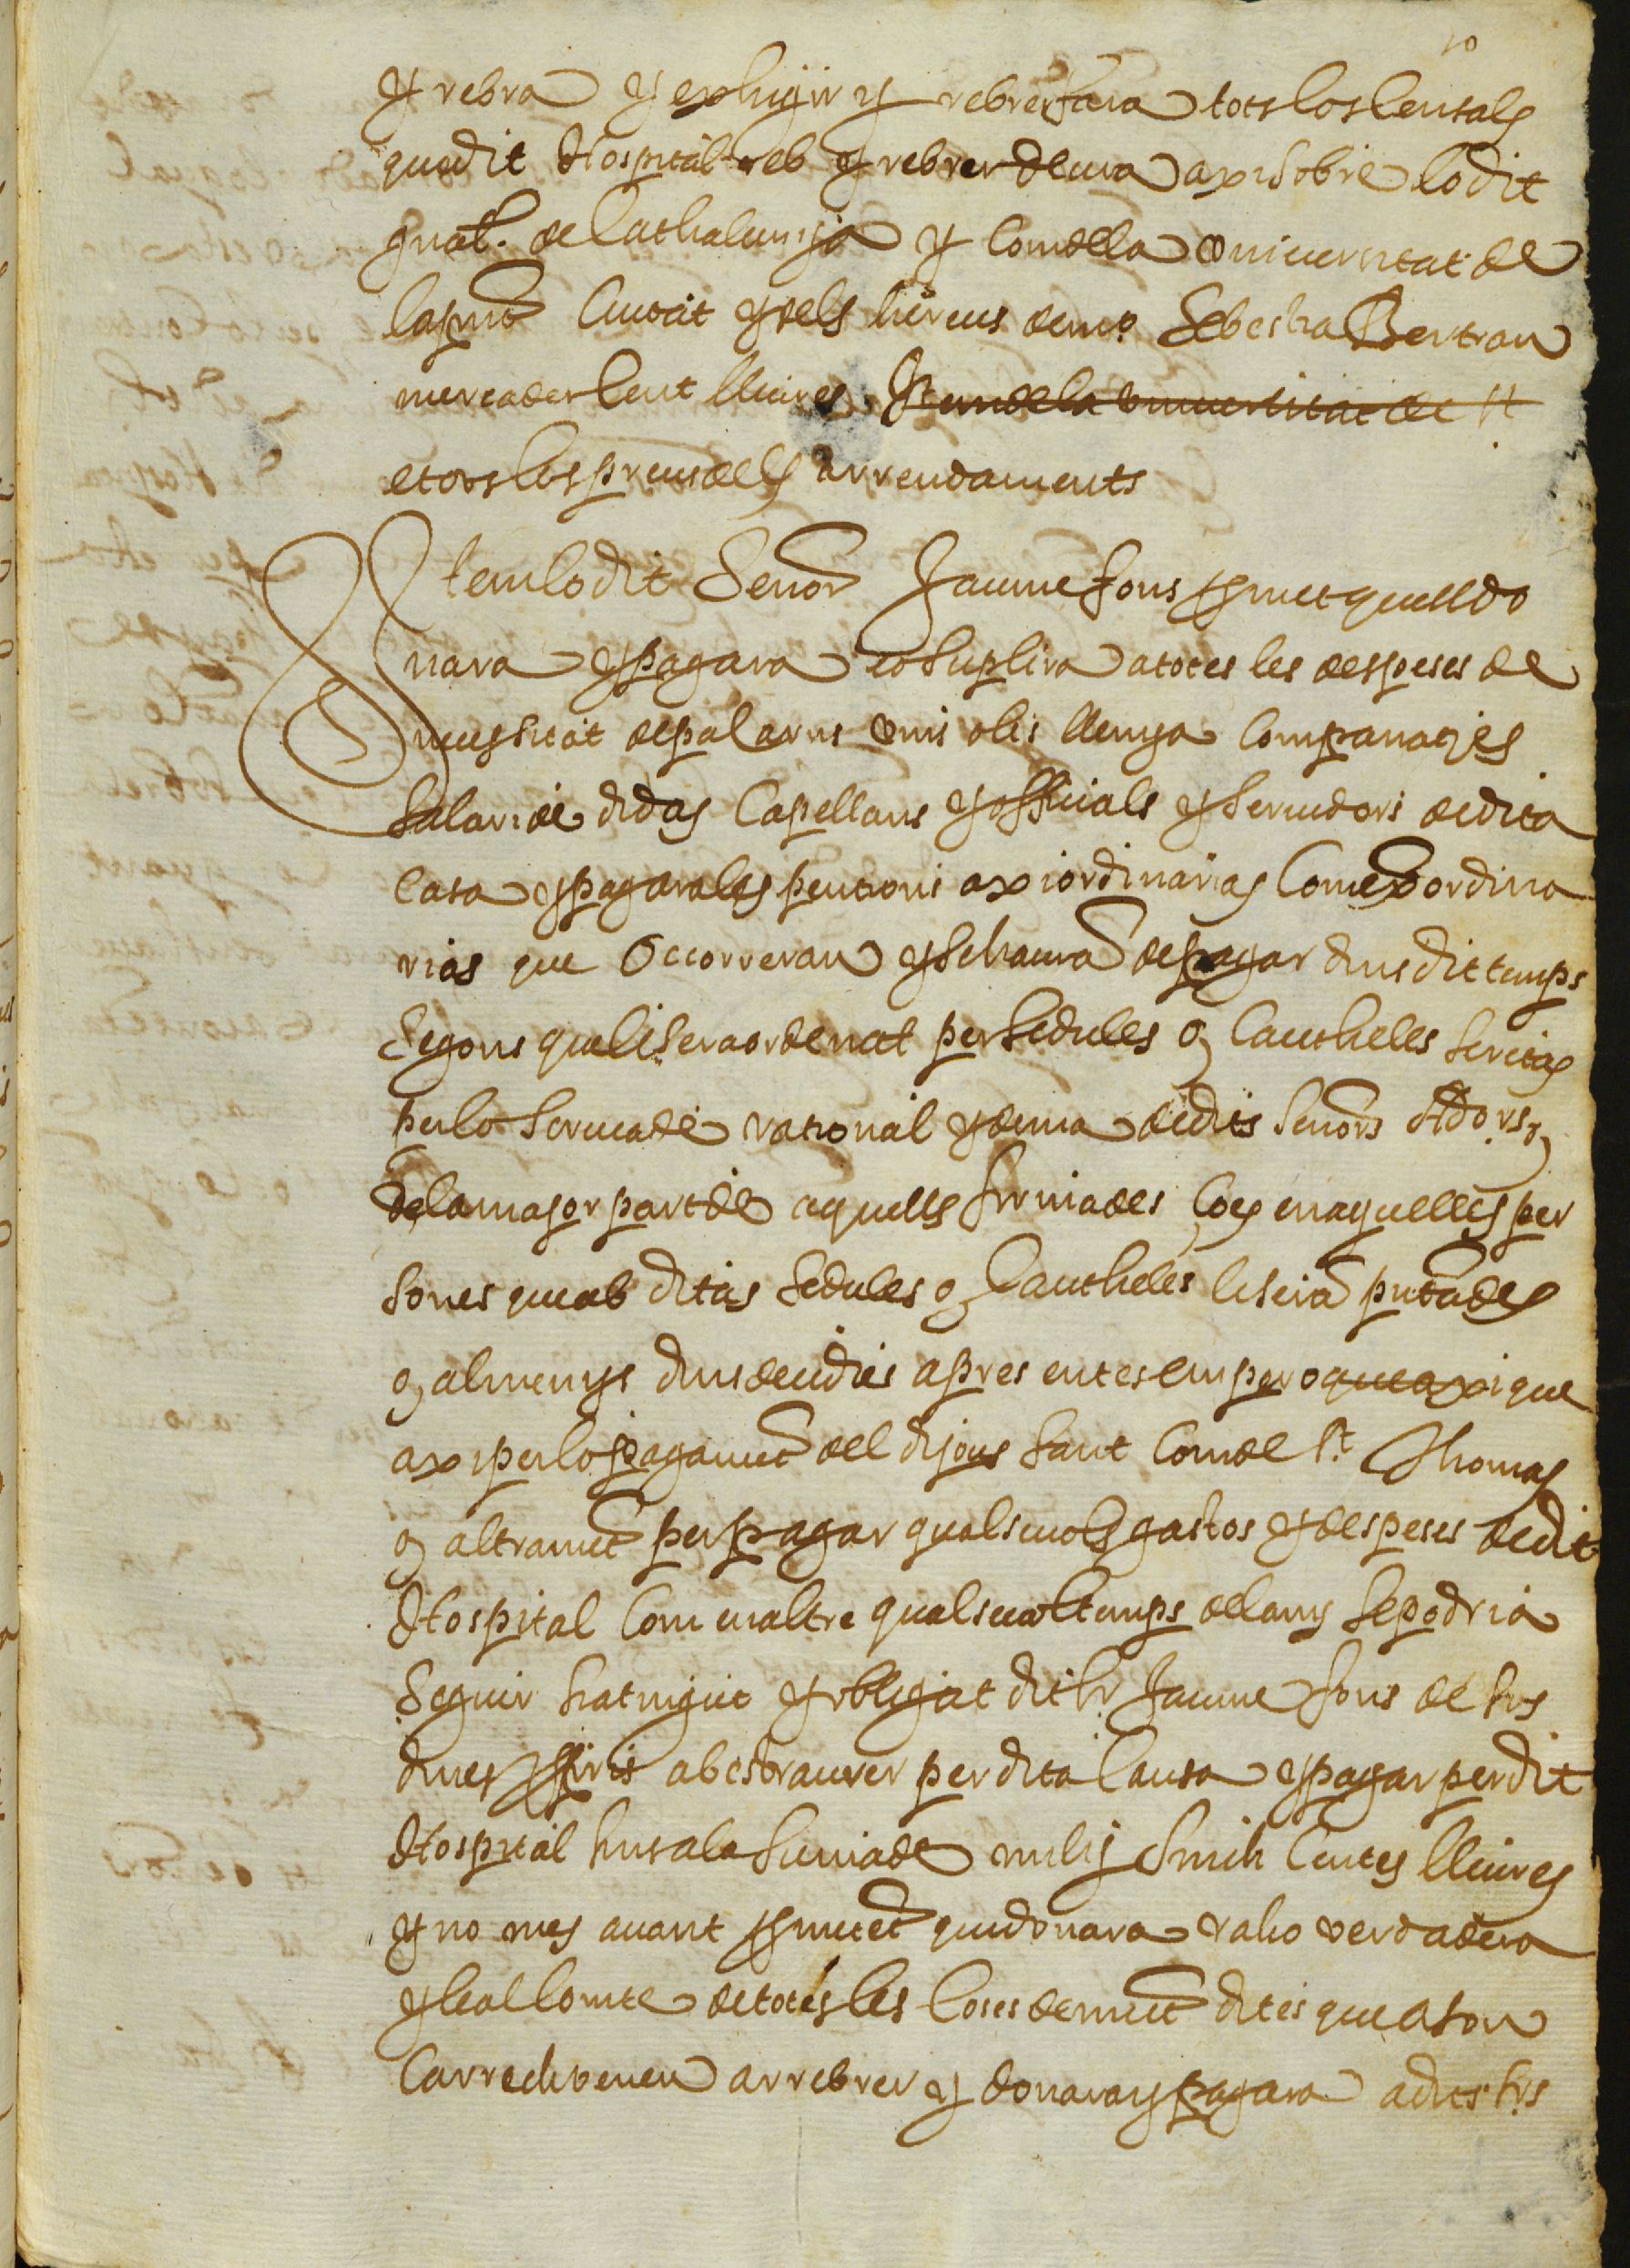 10
y rebra y exhigir y rebrer fara tots los censals
que dit Hospital reb y rebrer deura axi sobre lo dit
gnal. de Cathalunya y com de la universitat de
la pnt Ciutat y dels hereus de mo. Sebestia Bertran
mercader cent lliures. Item de la universitat de St
e tots los preus dels arrendaments
Item lo dit Senor Jaume fons promet que ell do
nara y pagara e o suplira a totes les despeses de
necessitat de pa carns vins olis llenya companatjes
salari de didas Capellans y officials y servidors de dita
Casa y pagara les pencions axi ordinarias Com exordina
rias que Occorreran y se haura de pagar dins dit temps
Segons que li sera ordenat per sedules o, cautheles scritas
per lo scriva de rational y de ma de dits senors Ador's o,
de la major part de aquells firmades Co es en aquelles per
sones que ab ditas sedules o, cautheles li seran pntades
o, almenys dins deu dies apres entes empero que axi que
axi per lo pagamet del dijous Sant Com de St. Thomas
o, altramet per pagar qualsevols gastos y despeses de dit
Hospital Com en altre qualsevol temps del any se podria
Seguir hat tingut y obligat dit Sr. Jaume fons de sos
dines ppris a bestraurer per dita Causa y pagar per dit
Hospital fins a la Suma de mil y sinch Centes lliures
y no mes avant promet et que donara raho verdadera
y leal Comte de totes les Coses demut dites que a son
Carrech venen a rrebrer y donara y pagara a dits Srs